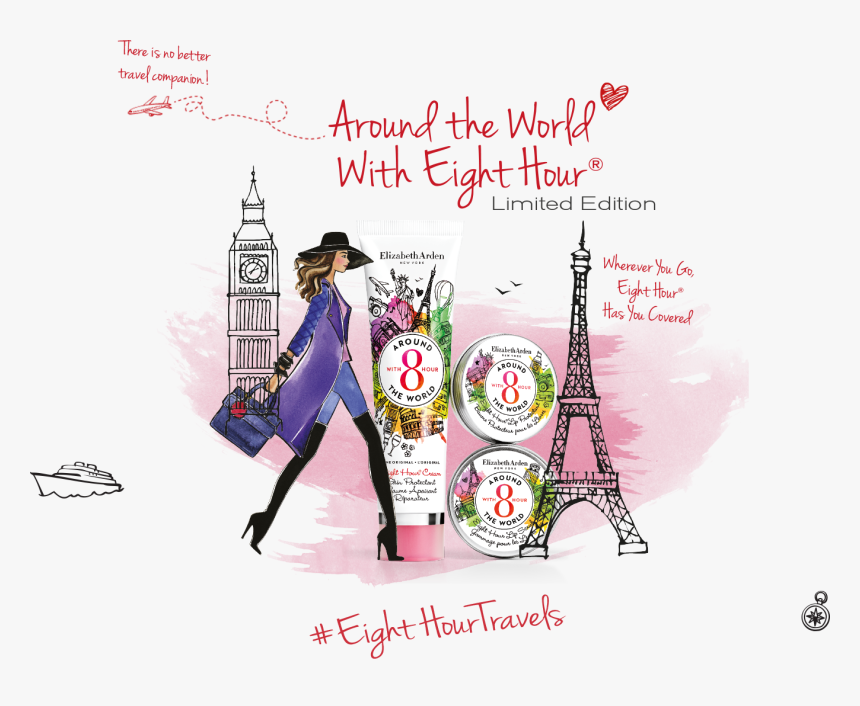 There is no better
travel companion!
Around the World
With Eight Hour®
Limited Edition
Wherever You Go,
Eight Hour®
Has You Covered
ElizabethArden
NEW YORK
AROUND
WITH 8 HOUR
THE WORLD
ORIGINAL • L'ORIGINAL
Eight Hour® Cream
Skin Protectant
Baume Apaisant
Réparateur
ElizabethArden
NEW YORK
AROUND
WITH 8 HOUR
THE WORLD
Eight Hour® Lip
ElizabethArden
NEW YORK
AROUND
WITH 8 HOUR
THE WORLD
Eight Hour Lip
Gommage pour les
#EightHourTravels